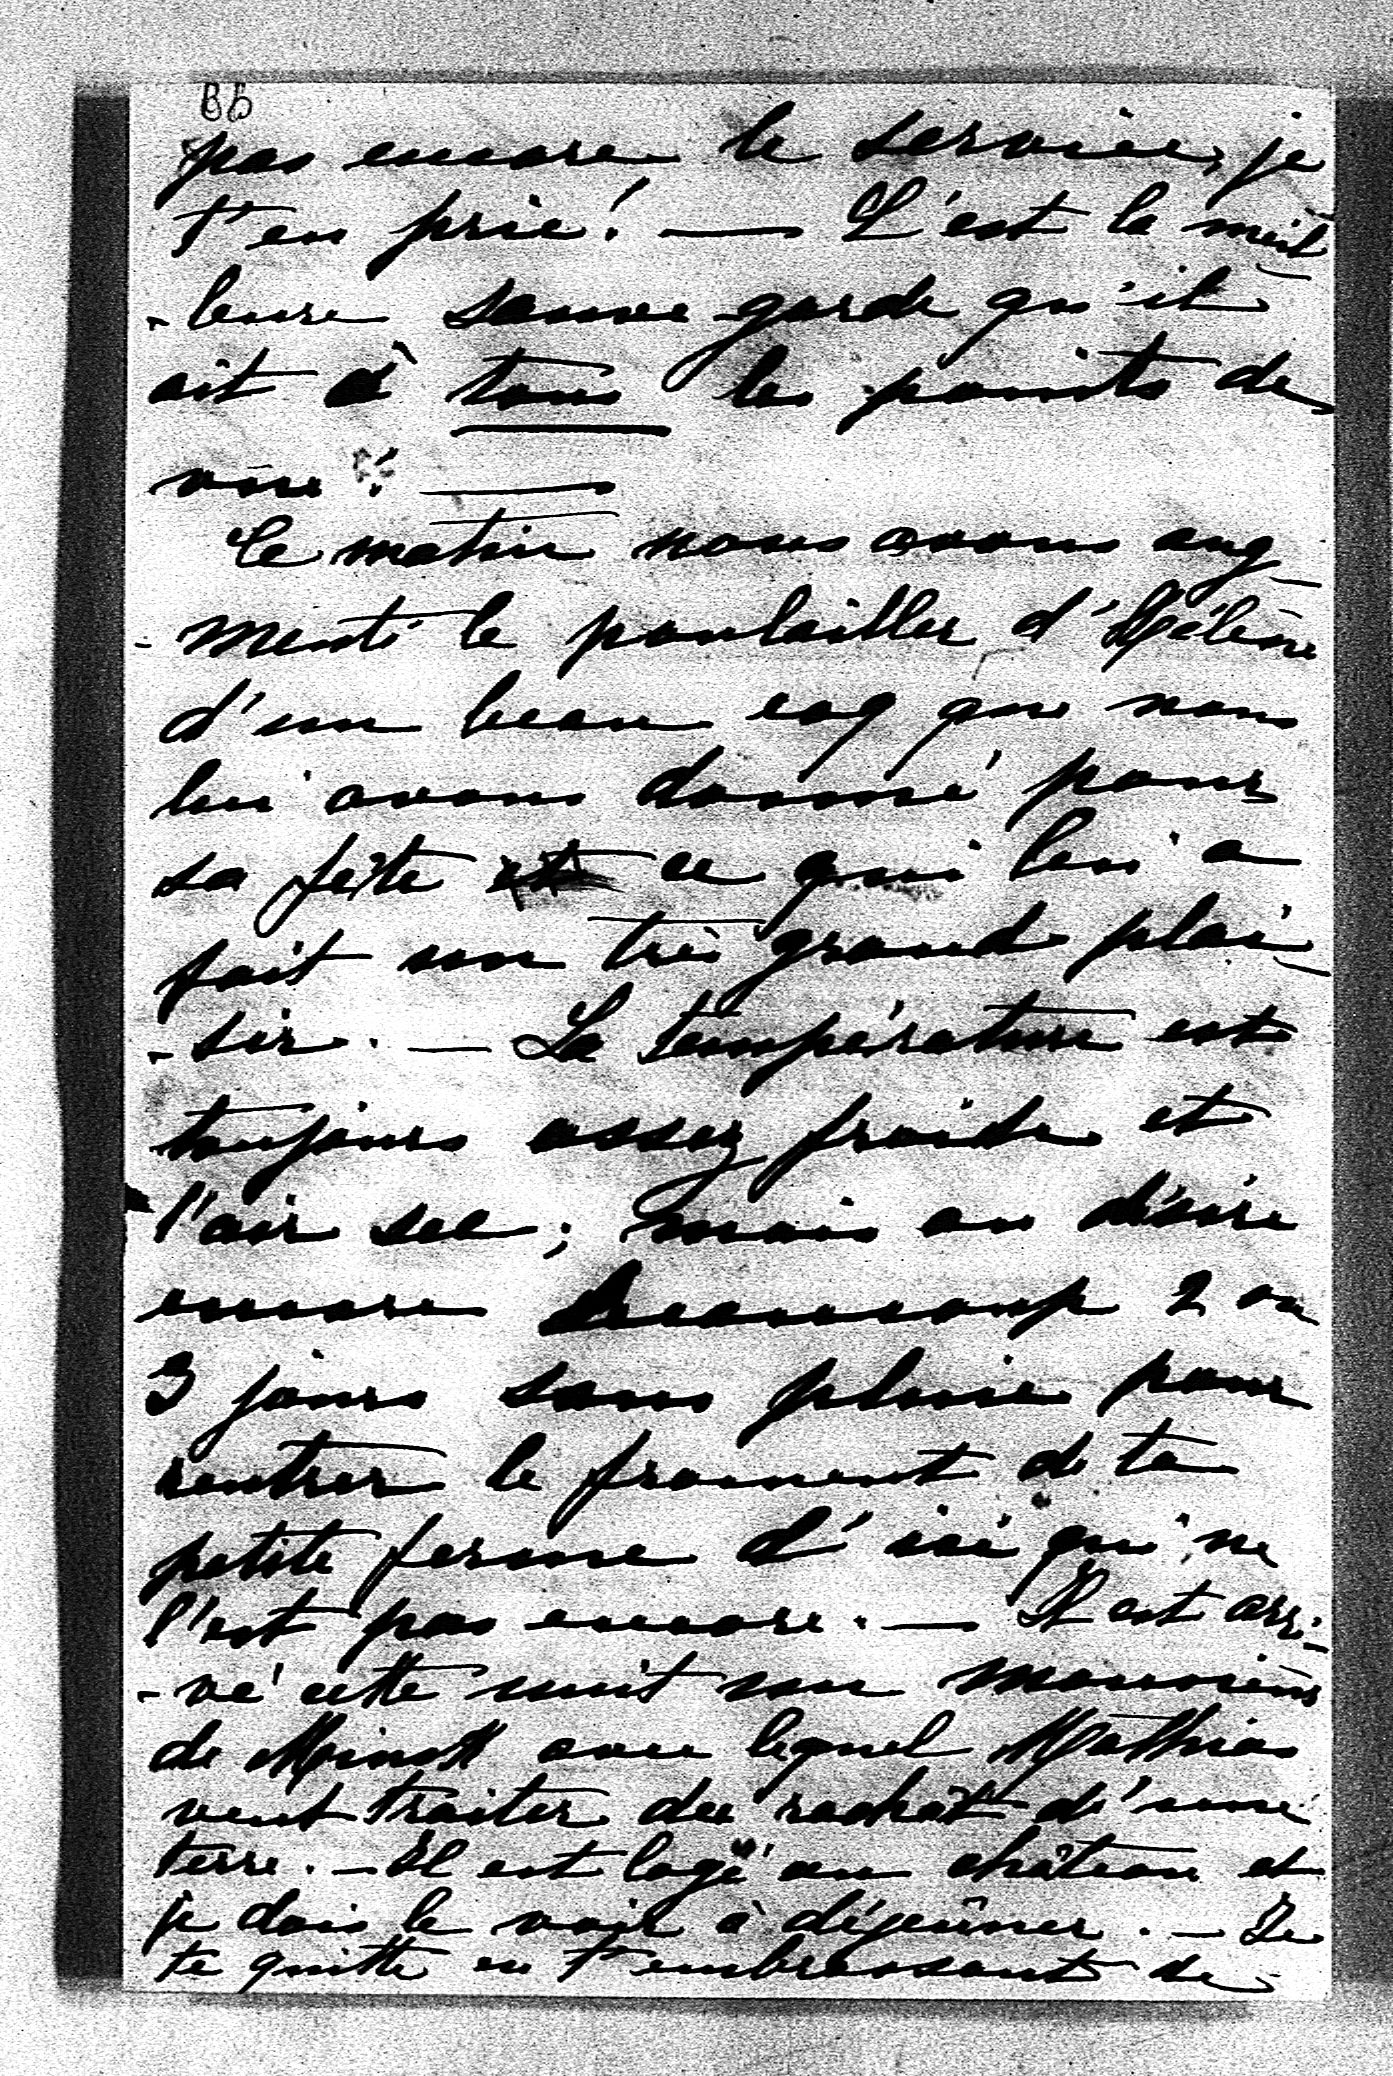 BB
pas encore le service, je
t'en prie! — C'est la meil
-leure sauve garde qu'il
ait à tous les points de
vue! —
Ce matin nous avons aug
-menté le poulailler d'Hélène
d'un beau coq que nous
lui avons donné pour
sa fête et ce qui lui a
fait un très grand plai
-sir. — La température est
toujours assez froide et
l'air sec; mais on désire
encore beaucoup 2 ou
3 jours sans pluie pour
rentrer le froment de ta
petite ferme d'ici qui ne
l'est pas encore. — Il est arri-
-vé cette nuit un monsieur
de avec lequel Mathias
veut traiter du rachat d'une
terre. — Il est logé au château et
je dois le voir à déjeûner. — Je
te quitte en t'embrassant de